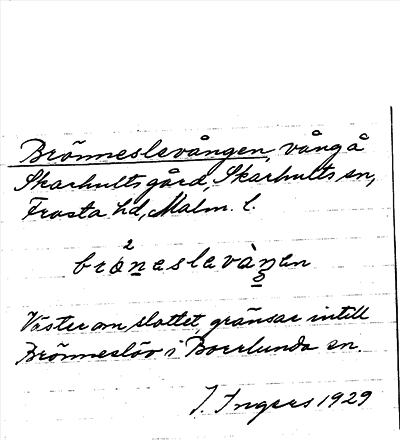 Brönneslevången, vång å
Skarhults gård, Skarhults sn,
Frosta hd, Malm. l.
2
brönèslevàŋen
Väster om slottet, gränsar intill
Brönneslöv i Borrlunda sn.
J. Ingers 1929